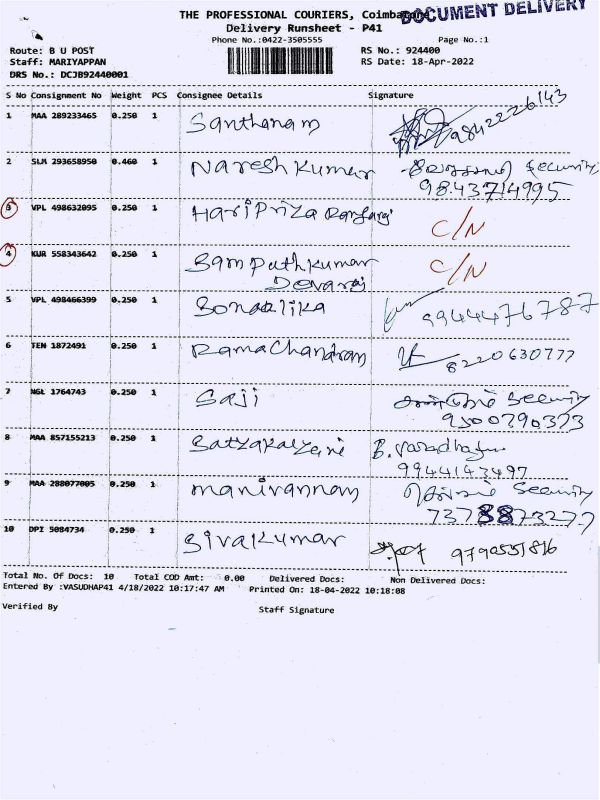 THE PROFESSIONAL COURIERS, Coimbatore
DOCUMENT DELIVERY
Delivery Runsheet - P41
Phone No.:0422-3505555
Page No.:1
Route: B U POST
RS No.: 924400
Staff: MARIYAPPAN
RS Date: 18-Apr-2022
DRS No.: DCJB92440001
S No Consignment No Weight PCS Consignee Details Signature
1 MAA 289233465 0.250 1 Santhanam 9842226143
2 SLM 293658950 0.460 1 Naresh Kumar Security
9843714995
3 VPL 498632095 0.250 1 HariPriya C/N
4 KUR 558343642 0.250 1 Sampathkumar C/N
Devaraj
5 VPL 498466399 0.250 1 Sonalika 9944476787
6 TEN 1872491 0.250 1 RamaChandram 8220630777
7 NGL 1764743 0.250 1 Saji Security
9500790373
8 MAA 857155213 0.250 1 Satyakalyani B.
9944143497
9 MAA 288077005 0.250 1 manivannam Security
10 DPI 5084734 0.250 1 SivaKumar 9790551816
Total No. Of Docs: 10 Total COD Amt: 0.00 Delivered Docs: Non Delivered Docs:
Entered By :VASUDHAP41 4/18/2022 10:17:47 AM Printed On: 18-04-2022 10:18:08
Verified By
Staff Signature